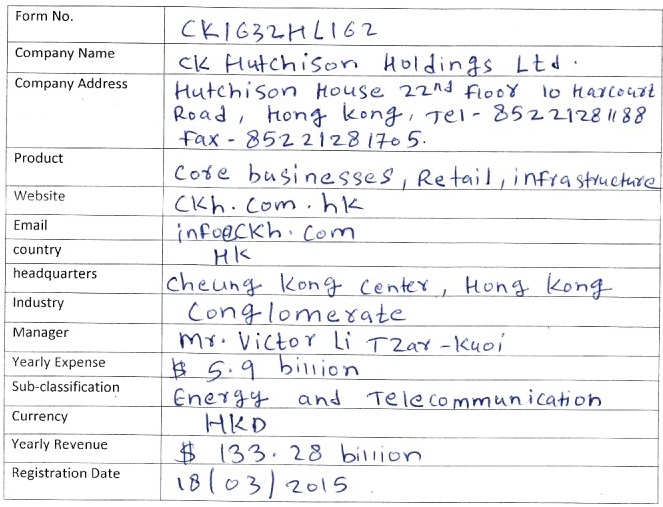 Form No. CK1632HL162
Company Name CK Hutchison Holdings Ltd.
Company Address Hutchison House 22nd floor 10 Harcourt
Road, Hong kong, Tel - 852 2128 1188
Fax - 852 2128 1705.
Product Core businesses, Retail, infrastructure
Website Ckh.com.hk
Email info@ckh.com
country HK
headquarters Cheung Kong Center, Hong Kong
Industry Conglomerate
Manager Mr. Victor Li TZar-Kuoi
Yearly Expense $ 5.9 billion
Sub-classification Energy and Telecommunication
Currency HKD
Yearly Revenue $ 133.28 billion
Registration Date 18/03/2015